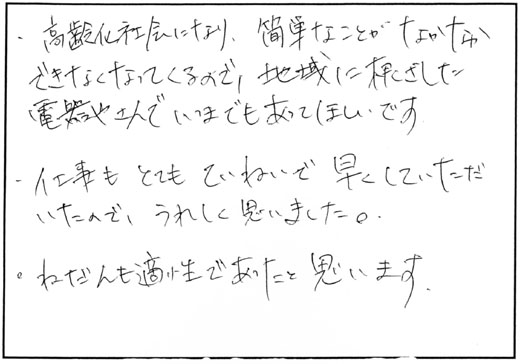 ・高齢化社会になり、簡単なことがなかなか
できなくなってくるので、地域に根ざした
電器やさんでいつまでもあってほしいです
・仕事もとてもていねいで早くしていただ
いたので、うれしく思いました。
・ねだんも適性であったと思います。